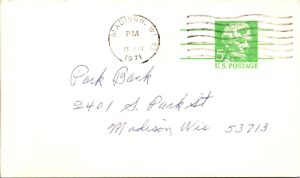 MADISON, WI
PM
1971
5¢
U.S. POSTAGE
Park Bank
2401 S. Park St
Madison, Wis 53713